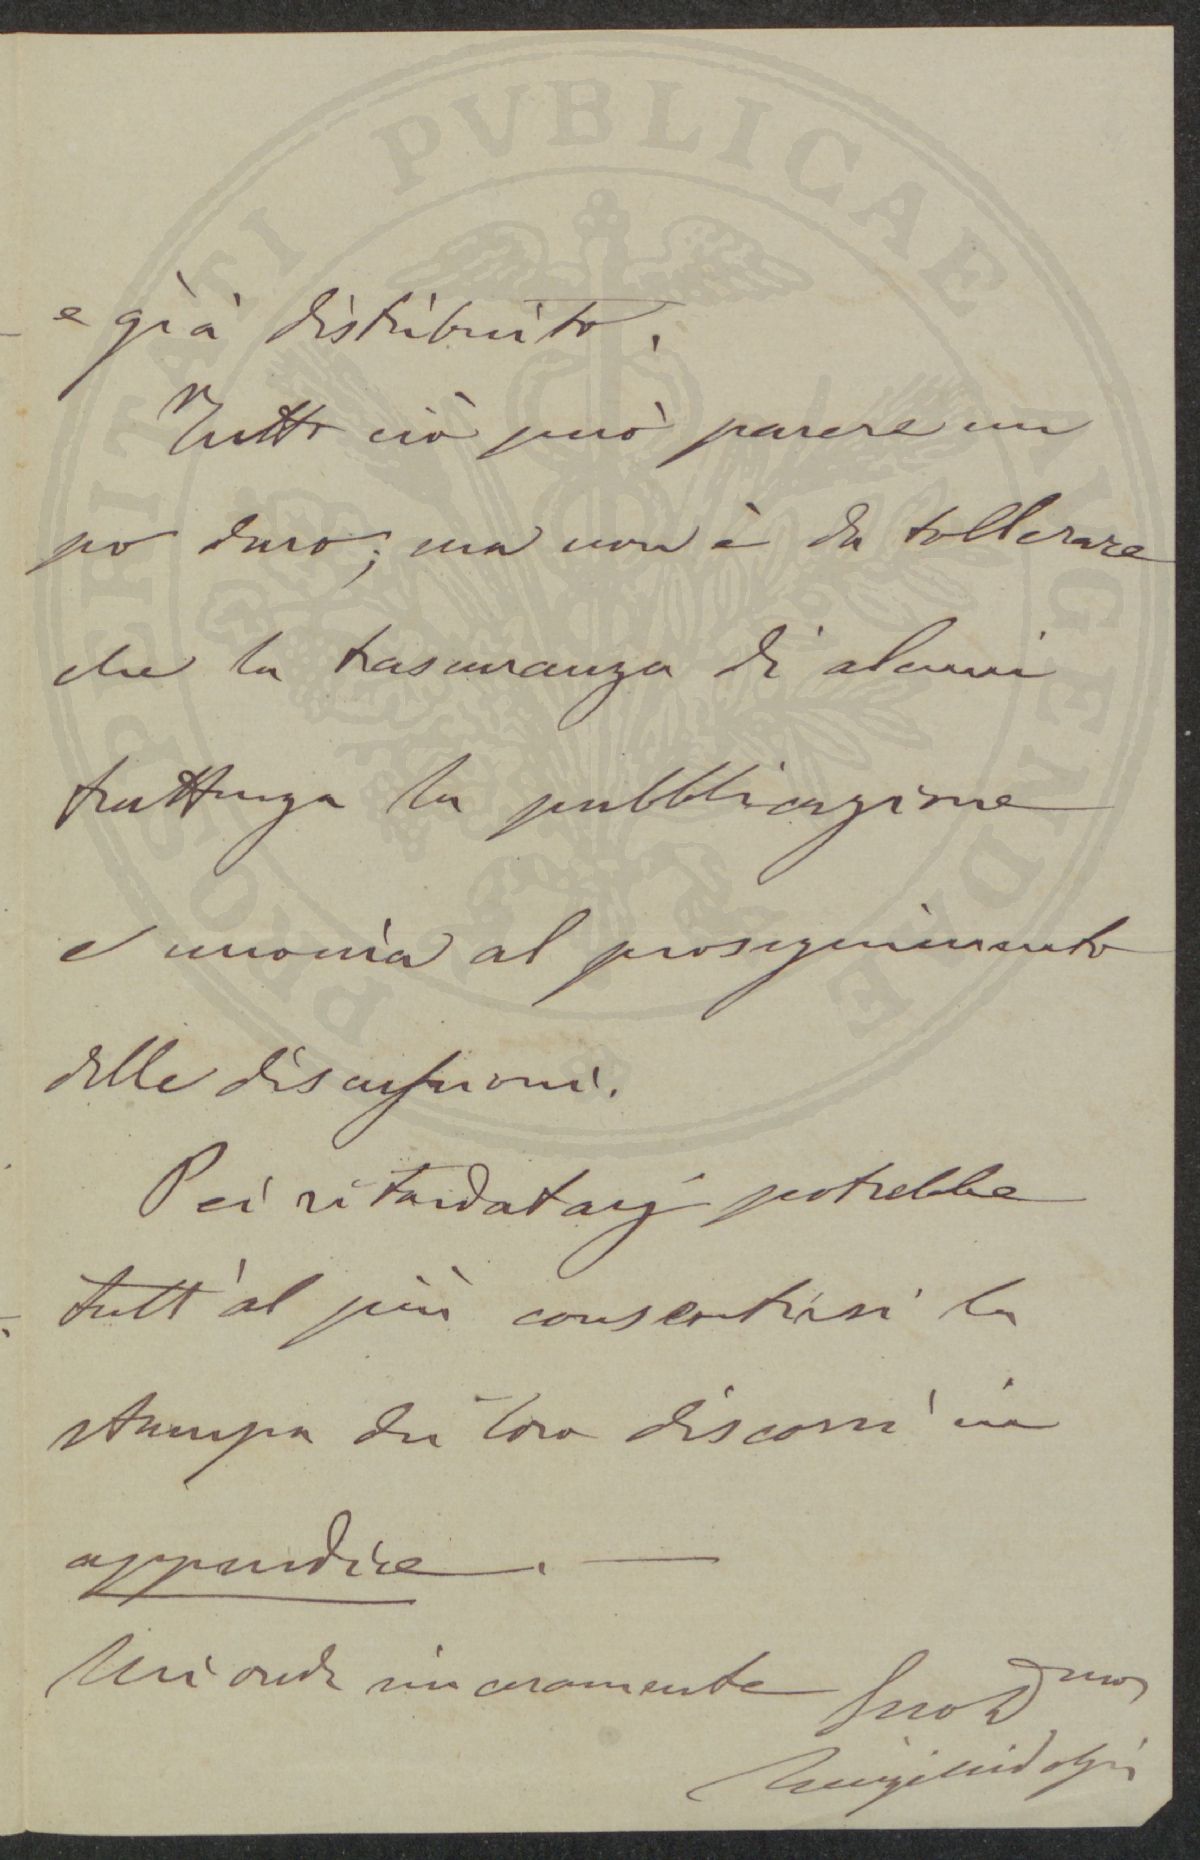 e già distribuito.
Tutto ciò può parere un
po duro; ma non è da tollerare
che la trascuranza di alcuni
trattenga la pubblicazione
e nuocia al proseguimento
delle discussioni.
Pei ritardatarj potrebbe
tutt'al più consentirsi la
stampa dei loro discorsi in
appendice. —
Mi creda sinceramente Suo Dmo
Luigi Ridolfi
PROSPERITATI PVBLICAE AVGENDAE